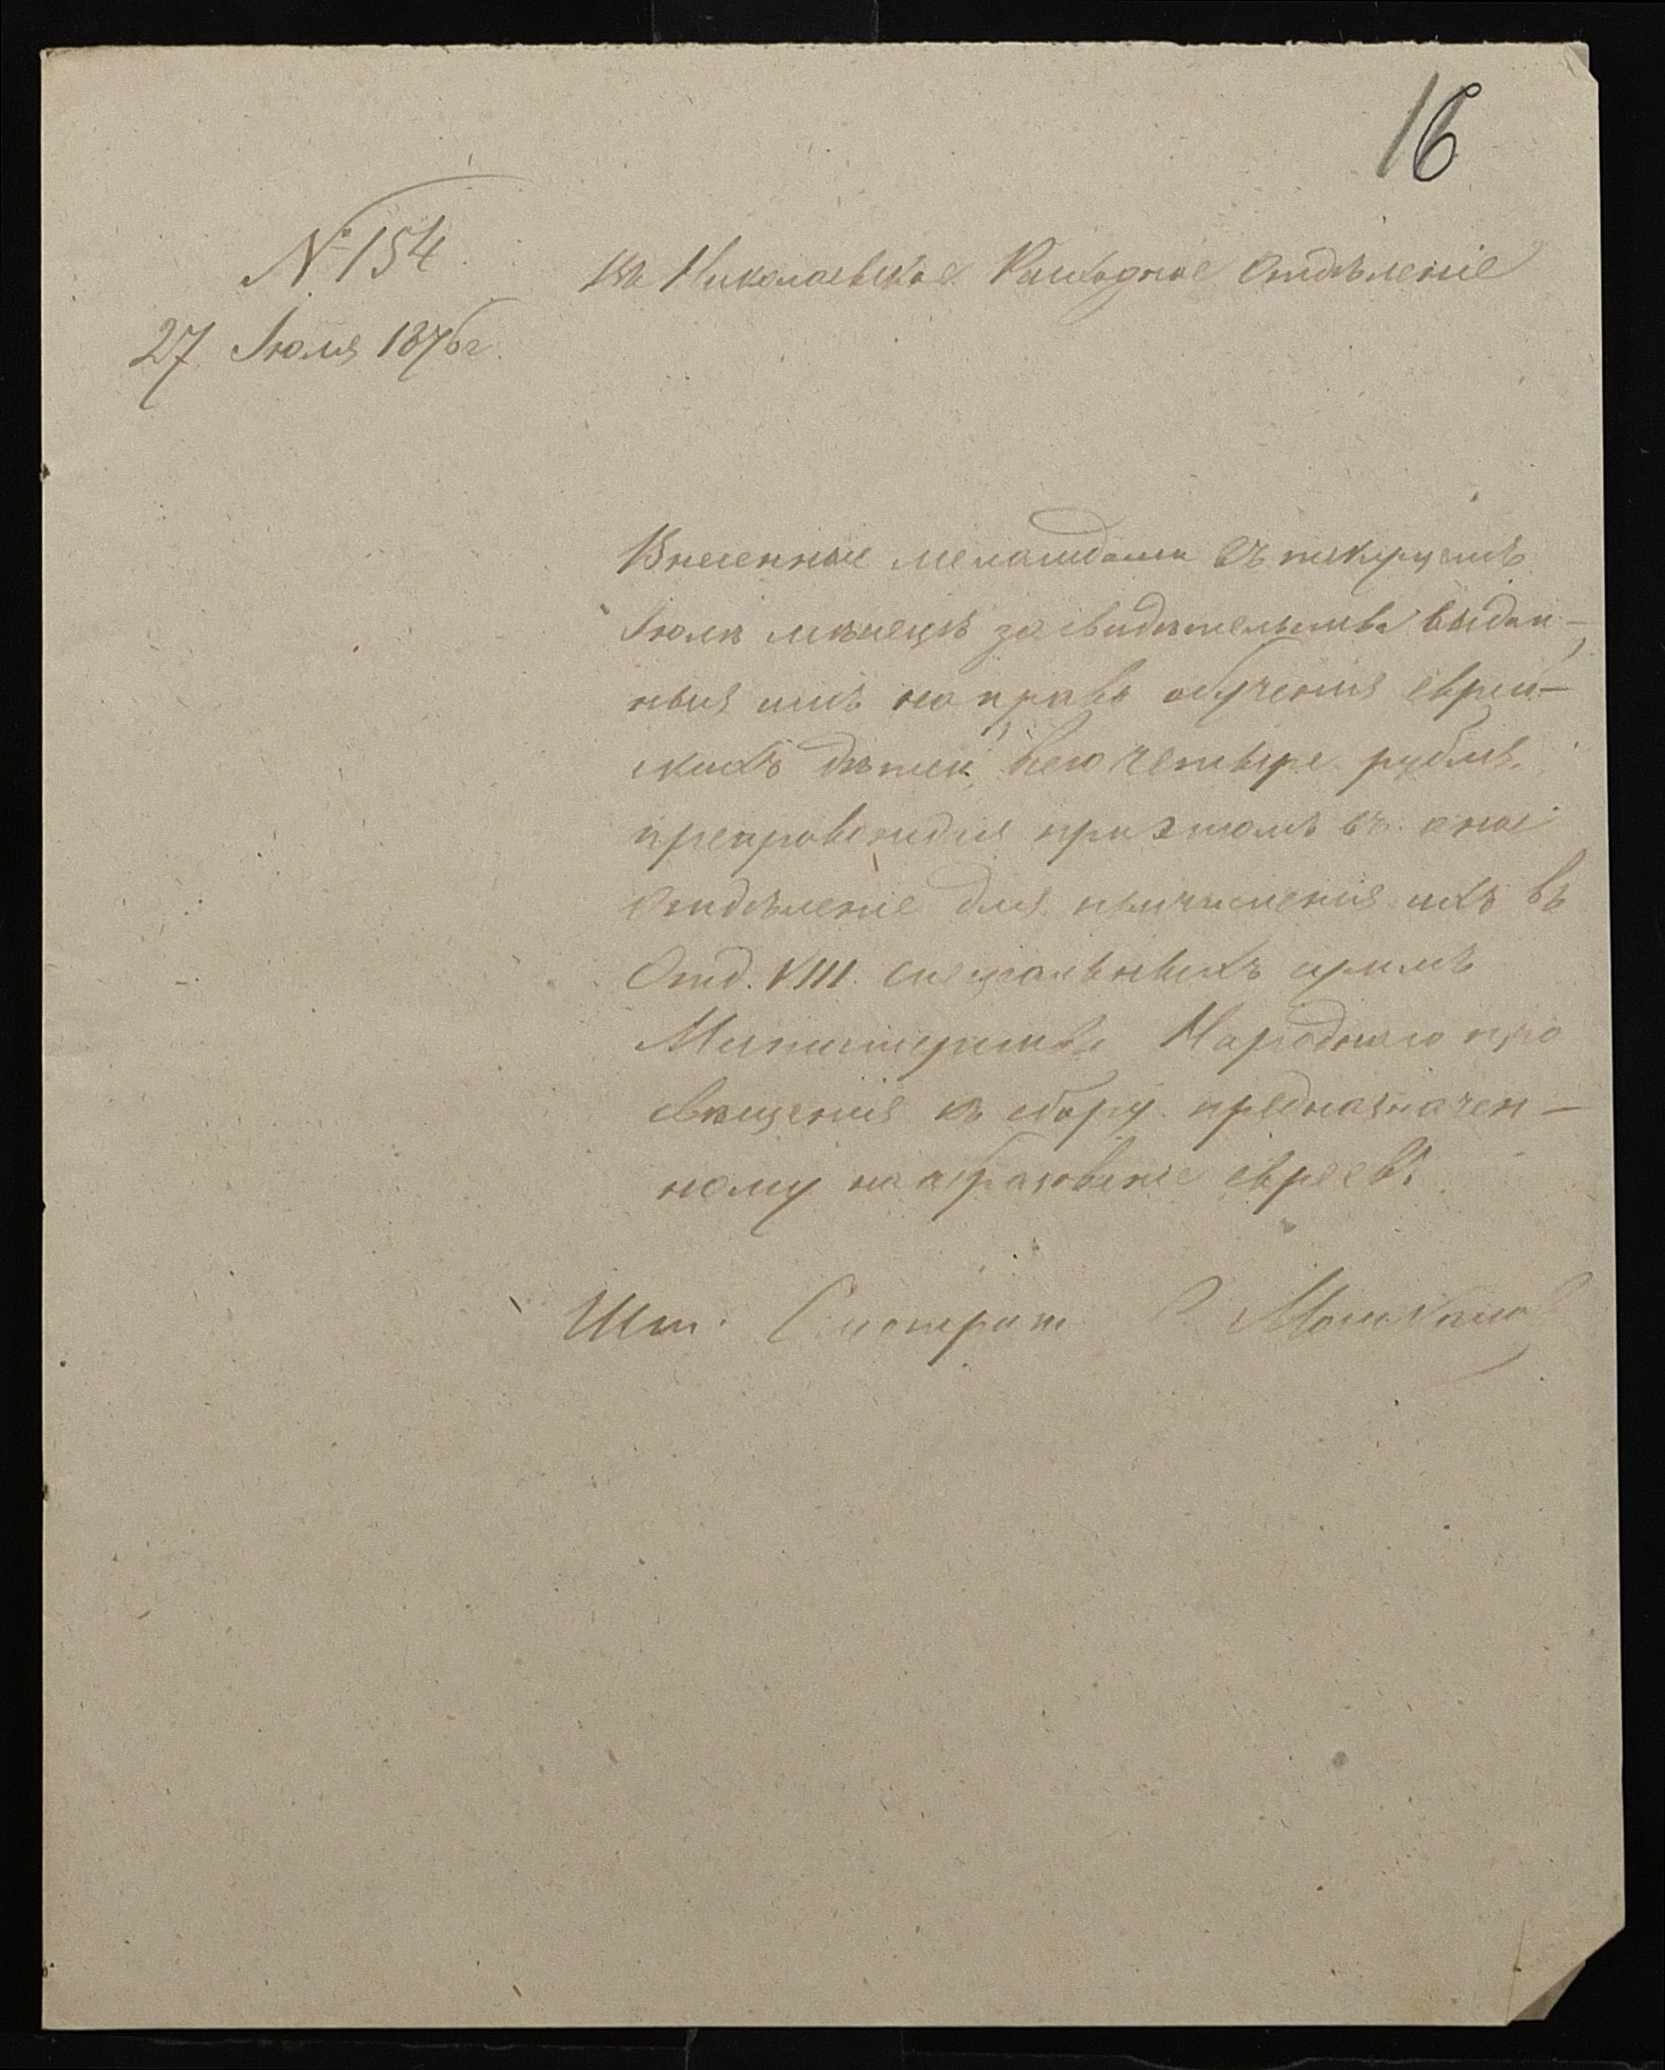 16
№ 154
27 Іюля 1876 г.
Въ Николаевское Расходное Отдѣленіе
Внесенные меламдами въ текущемъ
Іюлѣ мѣсяцѣ за свидѣтельства выдан-
ныя имъ на право обученія еврей-
скихъ дѣтей, всего четыре рубля,
препровождая при этомъ въ оное
Отдѣленіе для причисленія ихъ въ
Отд. VIII. спеціальныхъ суммъ
Министерства Народнаго про
свѣщенія къ сбору предназначен-
ному на образованіе евреевъ.
Шт. Смотрит